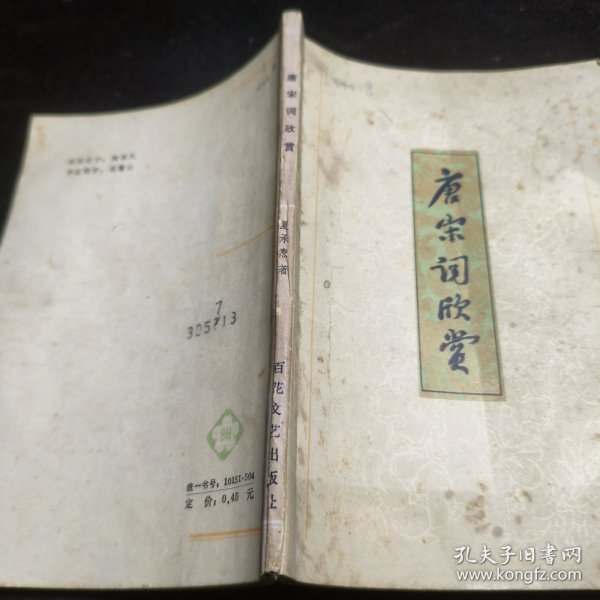 唐宋词欣赏
唐宋词欣赏
夏承焘著
百花文艺出版社
7
305713
统一书号：10151·504
定价：0.45元
孔夫子旧书网
www.kongfz.com